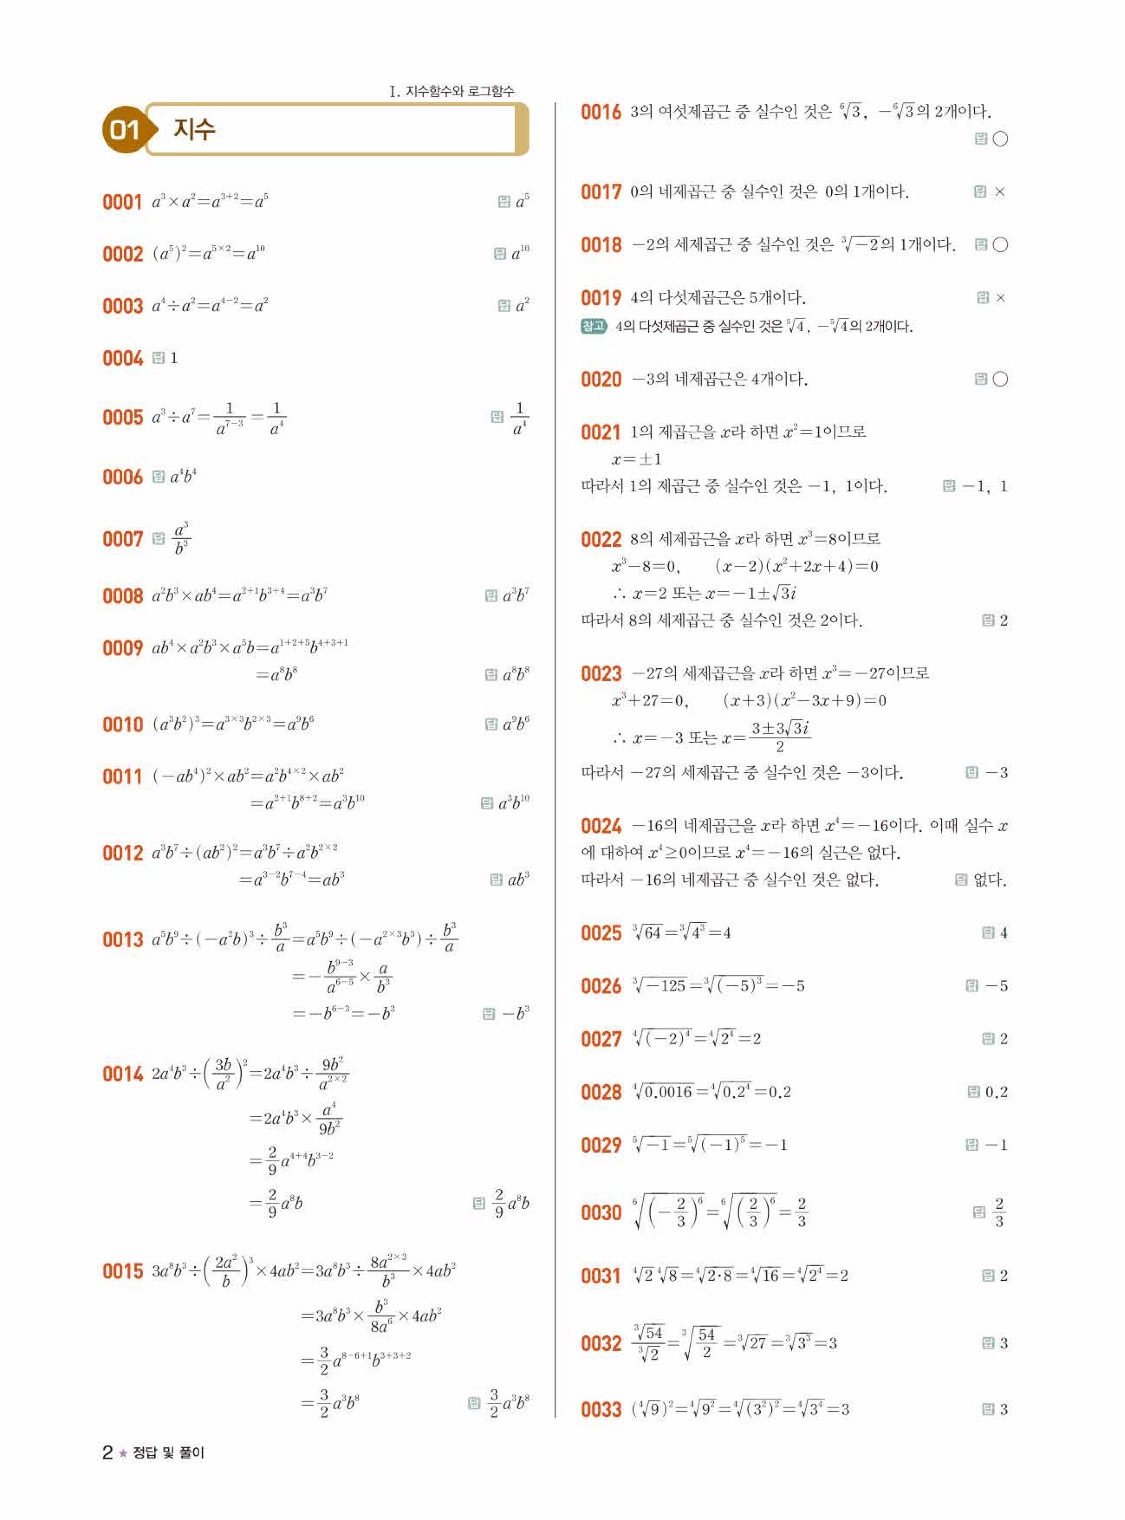 I. 지수함수와 로그함수
01 지수
0001 a³×a²=a³⁺²=a⁵ 답 a⁵
0002 (a⁵)²=a⁵ˣ²=a¹⁰ 답 a¹⁰
0003 a⁴÷a²=a⁴⁻²=a² 답 a²
0004 답 1
0005 a³÷a⁷=1/a⁷⁻³=1/a⁴ 답 1/a⁴
0006 답 a⁴b⁴
0007 답 a³/b³
0008 a²b³×ab⁴=a²⁺¹b³⁺⁴=a³b⁷ 답 a³b⁷
0009 ab⁴×a²b³×a⁵b=a¹⁺²⁺⁵b⁴⁺³⁺¹
=a⁸b⁸ 답 a⁸b⁸
0010 (a³b²)³=a³ˣ³b²ˣ³=a⁹b⁶ 답 a⁹b⁶
0011 (−ab⁴)²×ab²=a²b⁴ˣ²×ab²
=a²⁺¹b⁸⁺²=a³b¹⁰ 답 a³b¹⁰
0012 a³b⁷÷(ab²)²=a³b⁷÷a²b²ˣ²
=a³⁻²b⁷⁻⁴=ab³ 답 ab³
0013 a⁵b⁹÷(−a²b)³÷b³/a=a⁵b⁹÷(−a²ˣ³b³)÷b³/a
=−b⁹⁻³/a⁶⁻⁵×a/b³
=−b⁶⁻³=−b³ 답 −b³
0014 2a⁴b³÷(3b/a²)²=2a⁴b³÷9b²/a²ˣ²
=2a⁴b³×a⁴/9b²
=2/9a⁴⁺⁴b³⁻²
=2/9a⁸b 답 2/9a⁸b
0015 3a⁸b³÷(2a²/b)³×4ab²=3a⁸b³÷8a²ˣ²/b³×4ab²
=3a⁸b³×b³/8a⁶×4ab²
=3/2a⁸⁻⁶⁺¹b³⁺³⁺²
=3/2a³b⁸ 답 3/2a³b⁸
2 ★ 정답 및 풀이
0016 3의 여섯제곱근 중 실수인 것은 ⁶√3, −⁶√3의 2개이다.
답 ○
0017 0의 네제곱근 중 실수인 것은 0의 1개이다. 답 ×
0018 −2의 세제곱근 중 실수인 것은 ³√−2의 1개이다. 답 ○
0019 4의 다섯제곱근은 5개이다. 답 ×
참고 4의 다섯제곱근 중 실수인 것은 ⁵√4, −⁵√4의 2개이다.
0020 −3의 네제곱근은 4개이다. 답 ○
0021 1의 제곱근을 x라 하면 x²=1이므로
x=±1
따라서 1의 제곱근 중 실수인 것은 −1, 1이다. 답 −1, 1
0022 8의 세제곱근을 x라 하면 x³=8이므로
x³−8=0, (x−2)(x²+2x+4)=0
∴ x=2 또는 x=−1±√3i
따라서 8의 세제곱근 중 실수인 것은 2이다. 답 2
0023 −27의 세제곱근을 x라 하면 x³=−27이므로
x³+27=0, (x+3)(x²−3x+9)=0
∴ x=−3 또는 x=3±3√3i/2
따라서 −27의 세제곱근 중 실수인 것은 −3이다. 답 −3
0024 −16의 네제곱근을 x라 하면 x⁴=−16이다. 이때 실수 x
에 대하여 x⁴≥0이므로 x⁴=−16의 실근은 없다.
따라서 −16의 네제곱근 중 실수인 것은 없다. 답 없다.
0025 ³√64=³√4³=4 답 4
0026 ³√−125=³√(−5)³=−5 답 −5
0027 ⁴√(−2)⁴=⁴√2⁴=2 답 2
0028 ⁴√0.0016=⁴√0.2⁴=0.2 답 0.2
0029 ⁵√−1=⁵√(−1)⁵=−1 답 −1
0030 ⁶√(−2/3)⁶=⁶√(2/3)⁶=2/3 답 2/3
0031 ⁴√2 ⁴√8=⁴√2·8=⁴√16=⁴√2⁴=2 답 2
0032 ³√54/³√2=³√54/2=³√27=³√3³=3 답 3
0033 (⁴√9)²=⁴√9²=⁴√(3²)²=⁴√3⁴=3 답 3